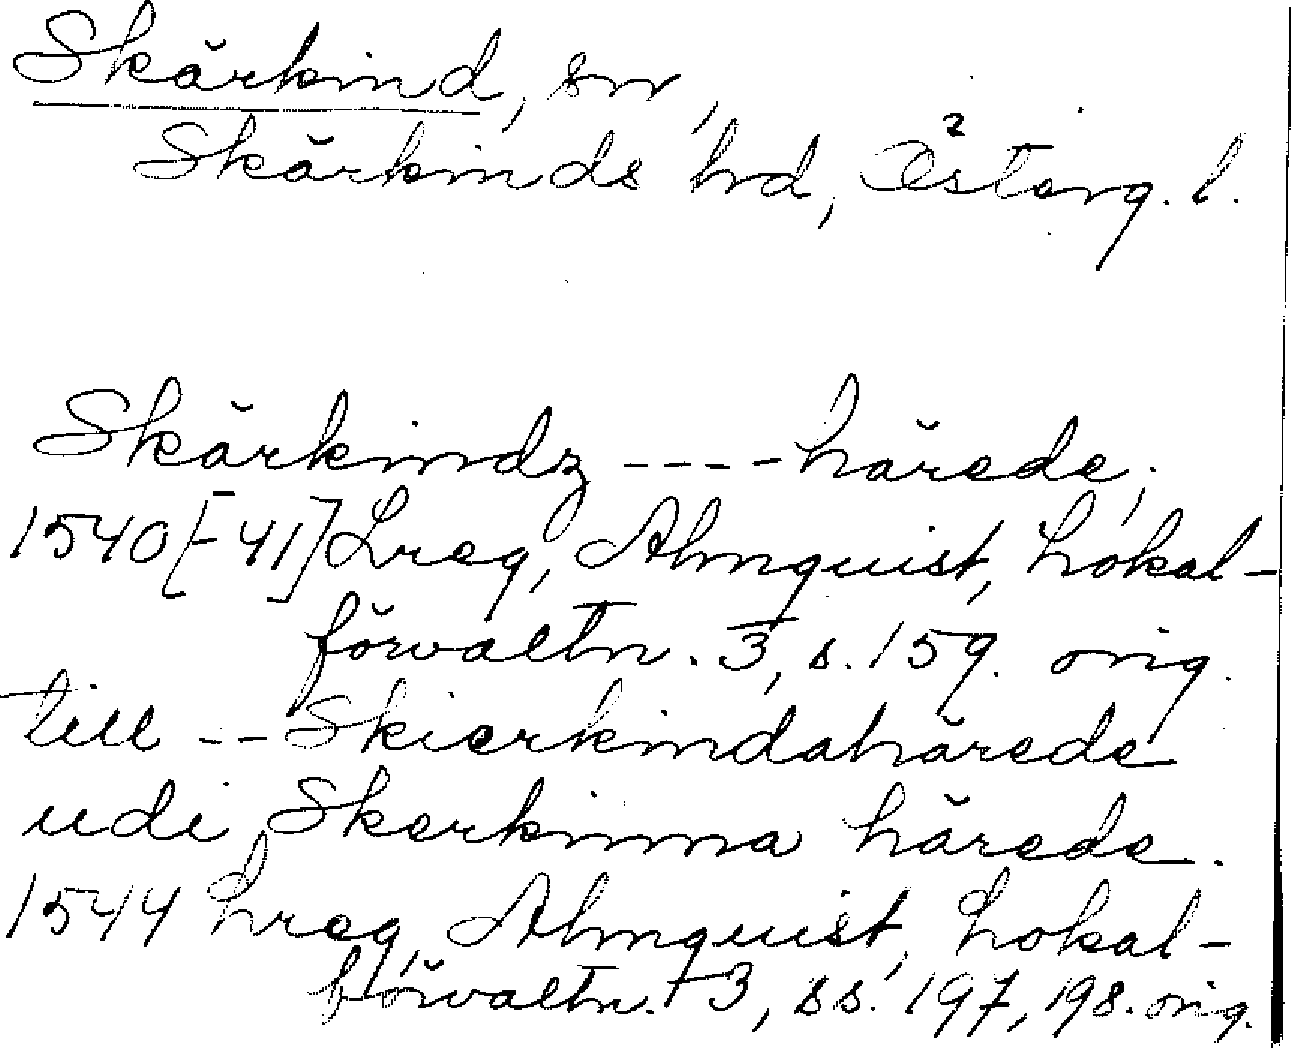 Skärkind, sn,
Skärkinds hd, Österg. l.
Skärkindz ---- härede,
1540[-41] Lreg, Almquist, Lokal-
förvaltn. 3, s. 159. orig.
till -- Skierkindahärede
udi Skerkinna härede.
1544 Lreg, Almquist, Lokal-
förvaltn. 3, ss. 197, 198. orig.